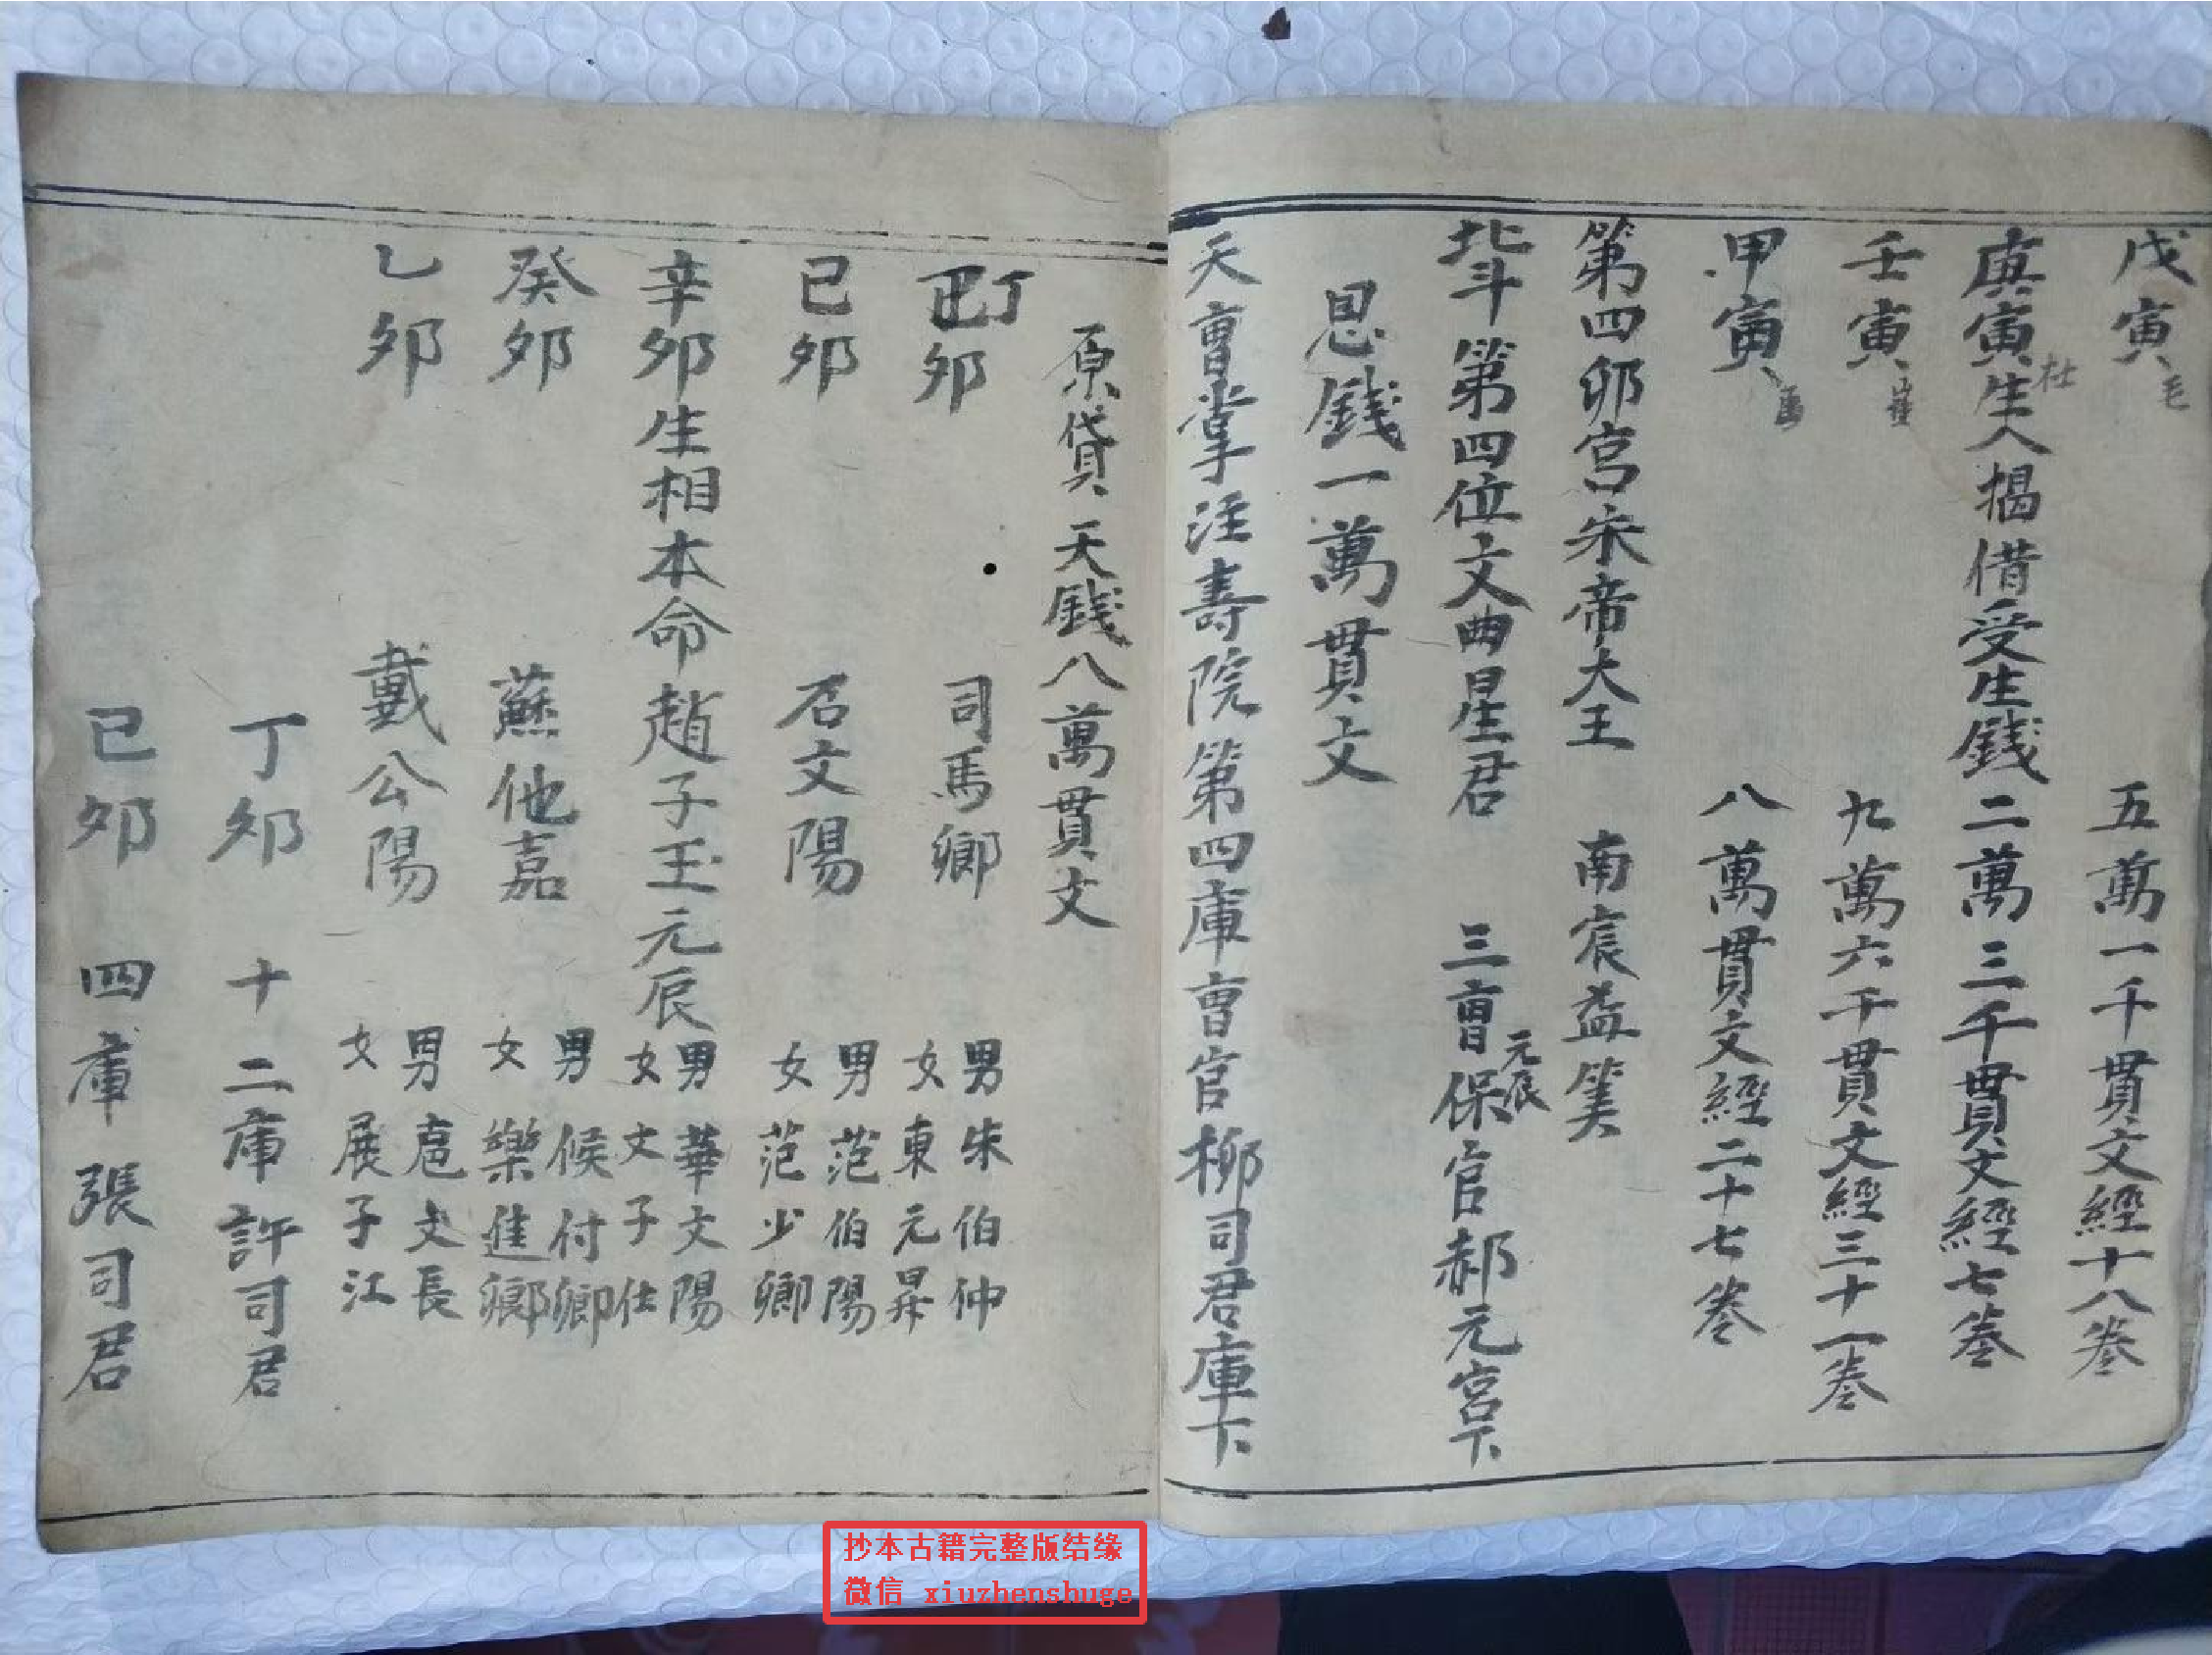 戊寅毛 五萬一千貫文經十八卷
庚寅杜生人揭借受生錢二萬三千貫文經七卷
壬寅崔 九萬六千貫文經三十一卷
甲寅 八萬貫文經二十七卷
第四卯宮宋帝大王 南宸益筭
北斗第四位文曲星君 三曹元辰保官郝元宮下
恩錢一萬貫文
天曹掌注壽院第四庫曹官柳司君庫下
原貸天錢八萬貫文
丁卯 司馬鄉 男朱伯仲 女東元昇
已卯 召文陽 男范伯陽 女范少卿
辛卯生相本命趙子玉元辰 男華文陽 女文子仕
癸卯 蘇他嘉 男候付卿 女樂進鄉
乙卯 戴公陽 男扈文長 女展子江
丁卯 十二庫許司君
已卯 四庫張司君
抄本古籍完整版结缘
微信 xiuzhenshuge